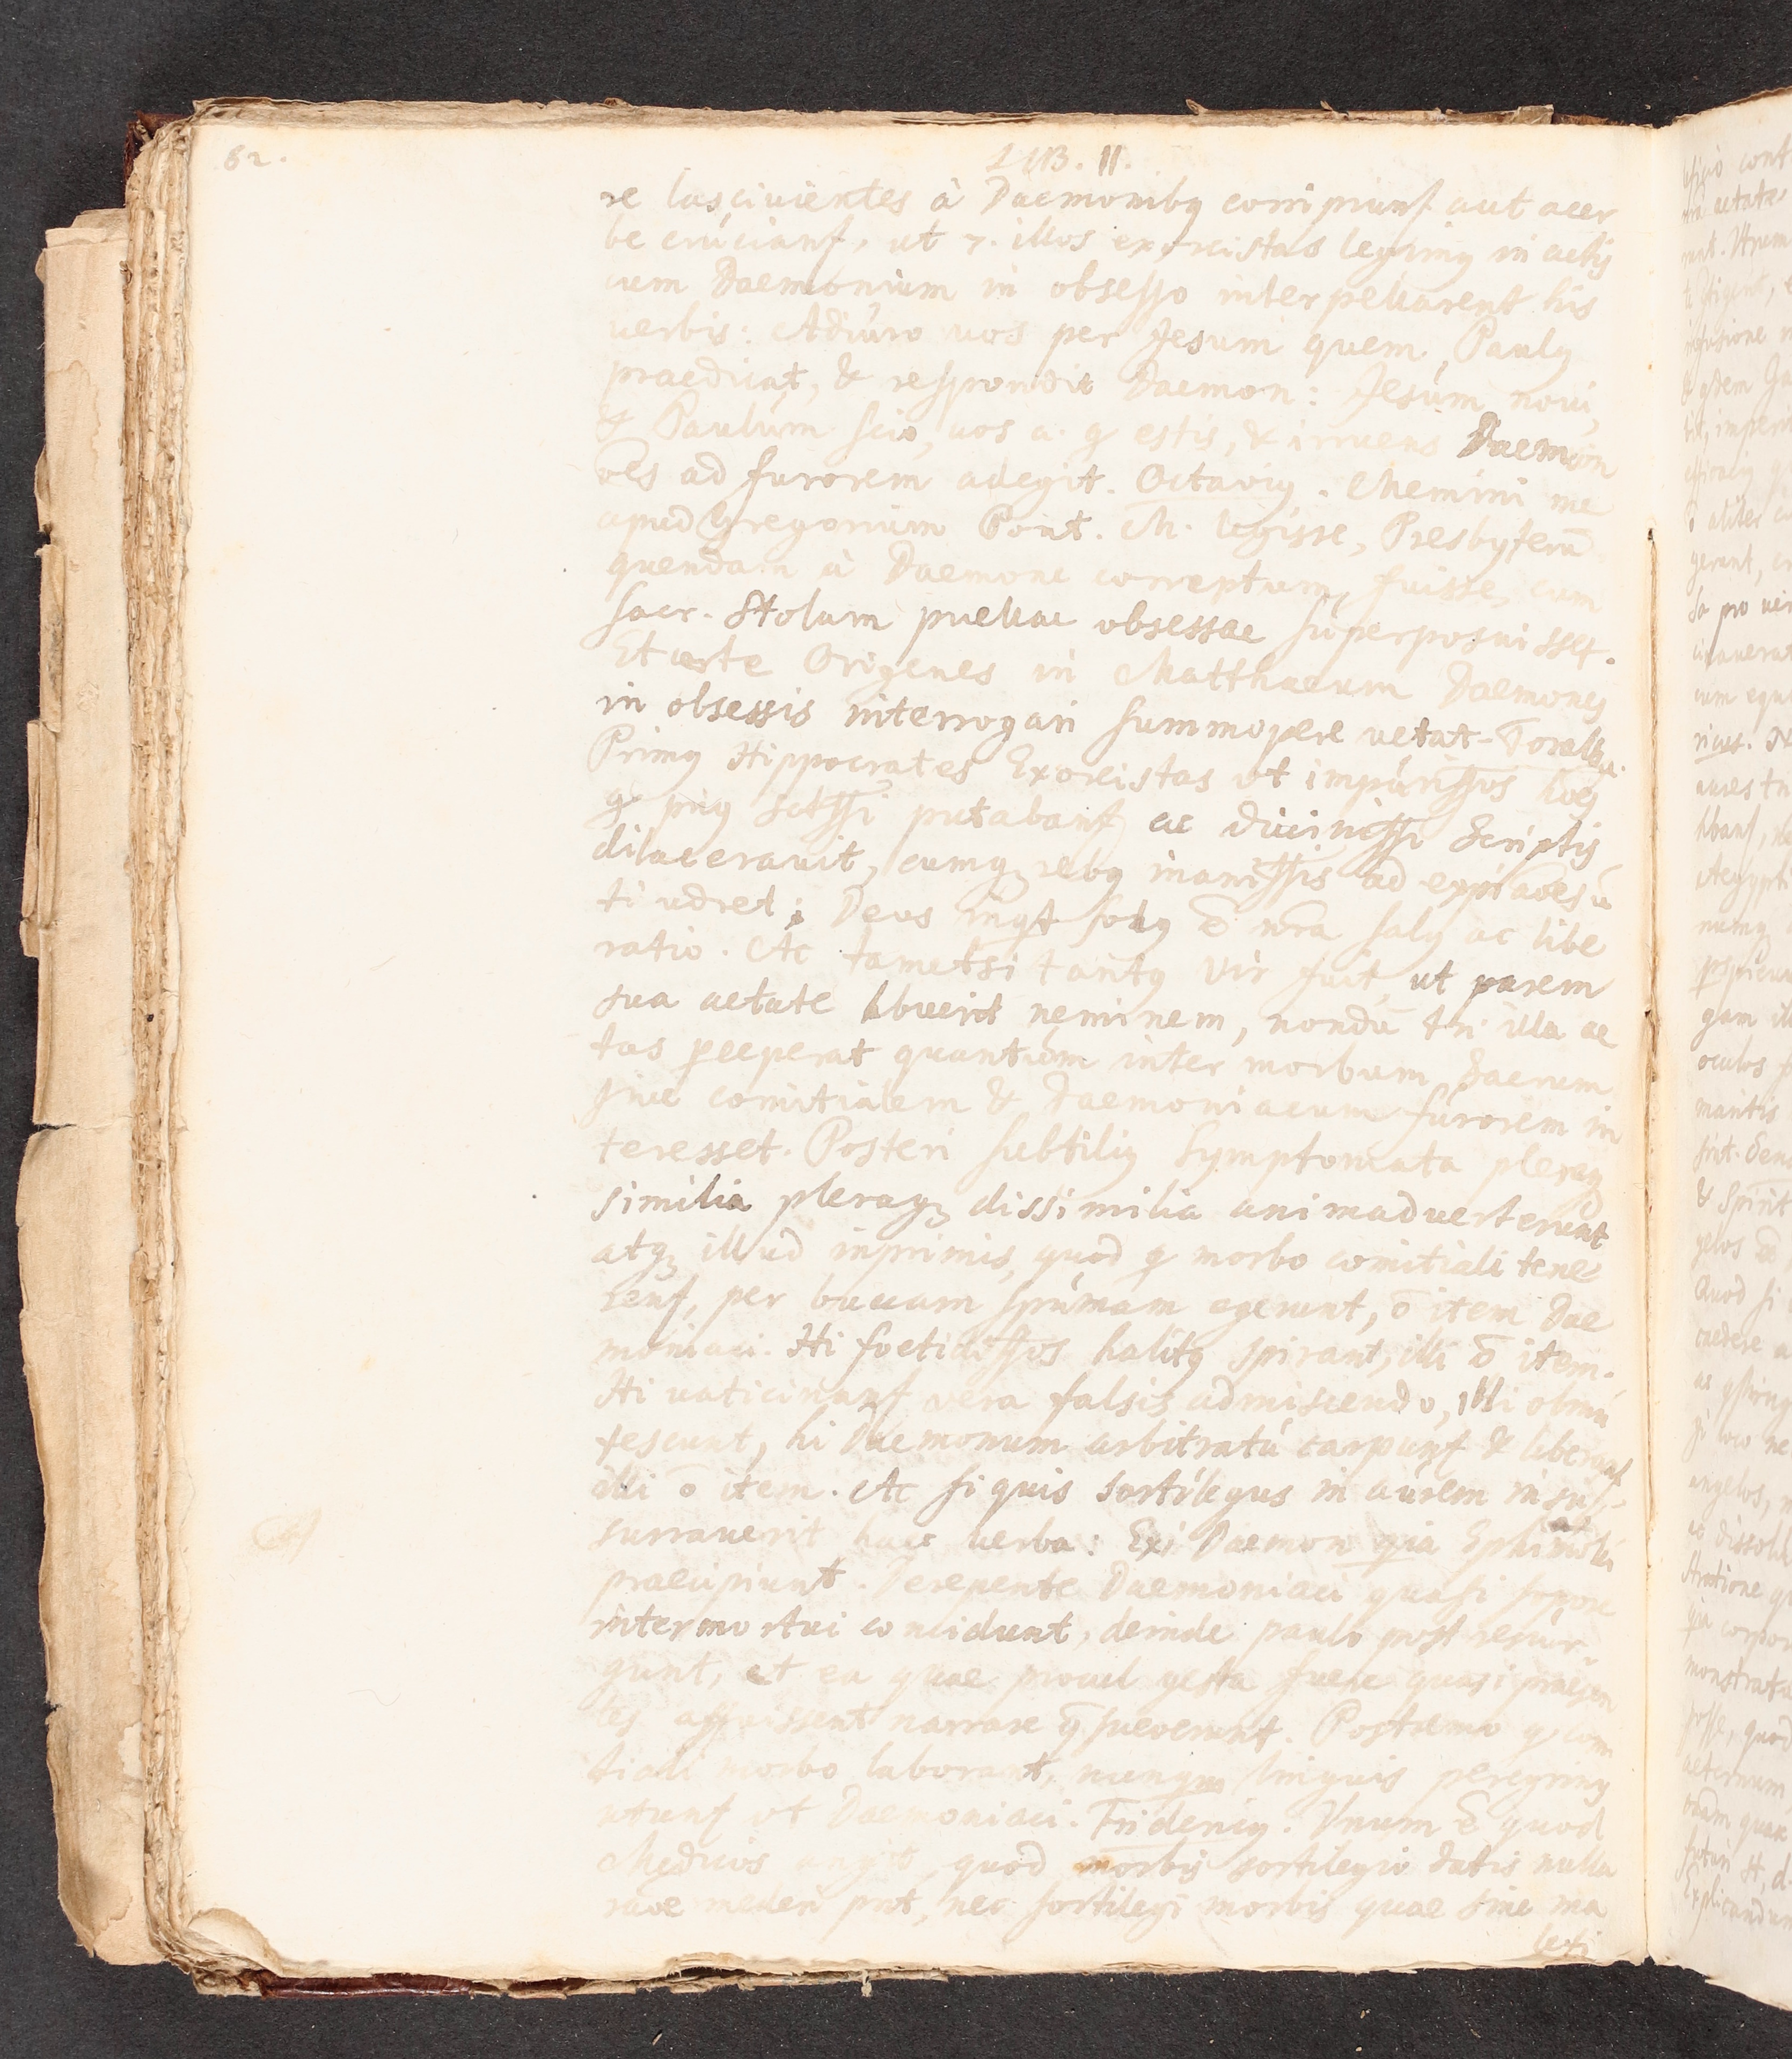 62.
LIB. II.
re lasciuientes à Daemonibꝫ corripiunt aut acer
be crúciant, ut 7. illos exorcistas legimꝫ in actis
cum Daemonium in obsesso interpellarent his
uerbis: Adiúro uos per Jesum quem Paulꝫ
praedicat, & respondit Daemon: Jesúm noui,
& Paulúm scio, uos a. q estis, & irruens Daemon
oēs ad furorem adegit. Octaviꝫ. Memini me
apud Gregorium Pont. M. legisse, Presbyterū
quendam à Daemone correptum fuisse, cum
sacr. Stolam puellae obsessae súperposuisset.
Et certe Origenes in Matthaeum Daemones
in obsessis interrogari summopere uetat. Toralba.
Primꝫ Hippocrates Exorcistas ut impúrissos hoēs
q piꝫ setssi putabant ac diuinissi Scriptis
dilacerauit, cumqꝫ rebꝫ inanissis ad expiaōes ū
ti udret; Deus inqt solꝫ ē nr̄a salꝫ ac libe
ratio. Ac tametsi tantꝫ Vir fuit, ut parem
sua aetate hbuerit neminem, nondū tn. illa ae
tas peeperat quantúm inter morbum Sacrum
siue comitialem & Daemoniacum fúrorem in
teresset. Posteri subtiliꝫ Symptomata pleraqꝫ
similia pleraqꝫ dissimilia animaduerterunt
atqꝫ illud inprimis, quod q morbo comitiali tene
rent, per buccam spúmam egerunt, ō item Dae
moniaci. Hi foetidissos halitꝫ spirant, illi ō item.
Hi uaticinant vera falsis admiscendo, illi obmu
tescunt, hi Daemonum arbitratú carpunt & liberant
illi ō item. Ac si quis sortílegus in aúrem insu-
surrauerit haec uerba: Exi Daemon qia Ephimolei
praecipiunt. Derepente Daemoniaci quasi sopore
intermortui concidunt, deinde paulo post resur-
gunt, et ea quae procul gesta fuere quasi praesen
tes affuissent narrare q̄sueuerunt. Postremo q comi
tiali morbo laborant, nunqm linguis peregrinꝫ
utunt ut Daemoniaci. Fridericꝫ. Vnum ē quod
Medicos angit, quod morbis sortilegio datis nulla
raōe mederi pnt, nec sortilegi morbis quae sine ma
lefi